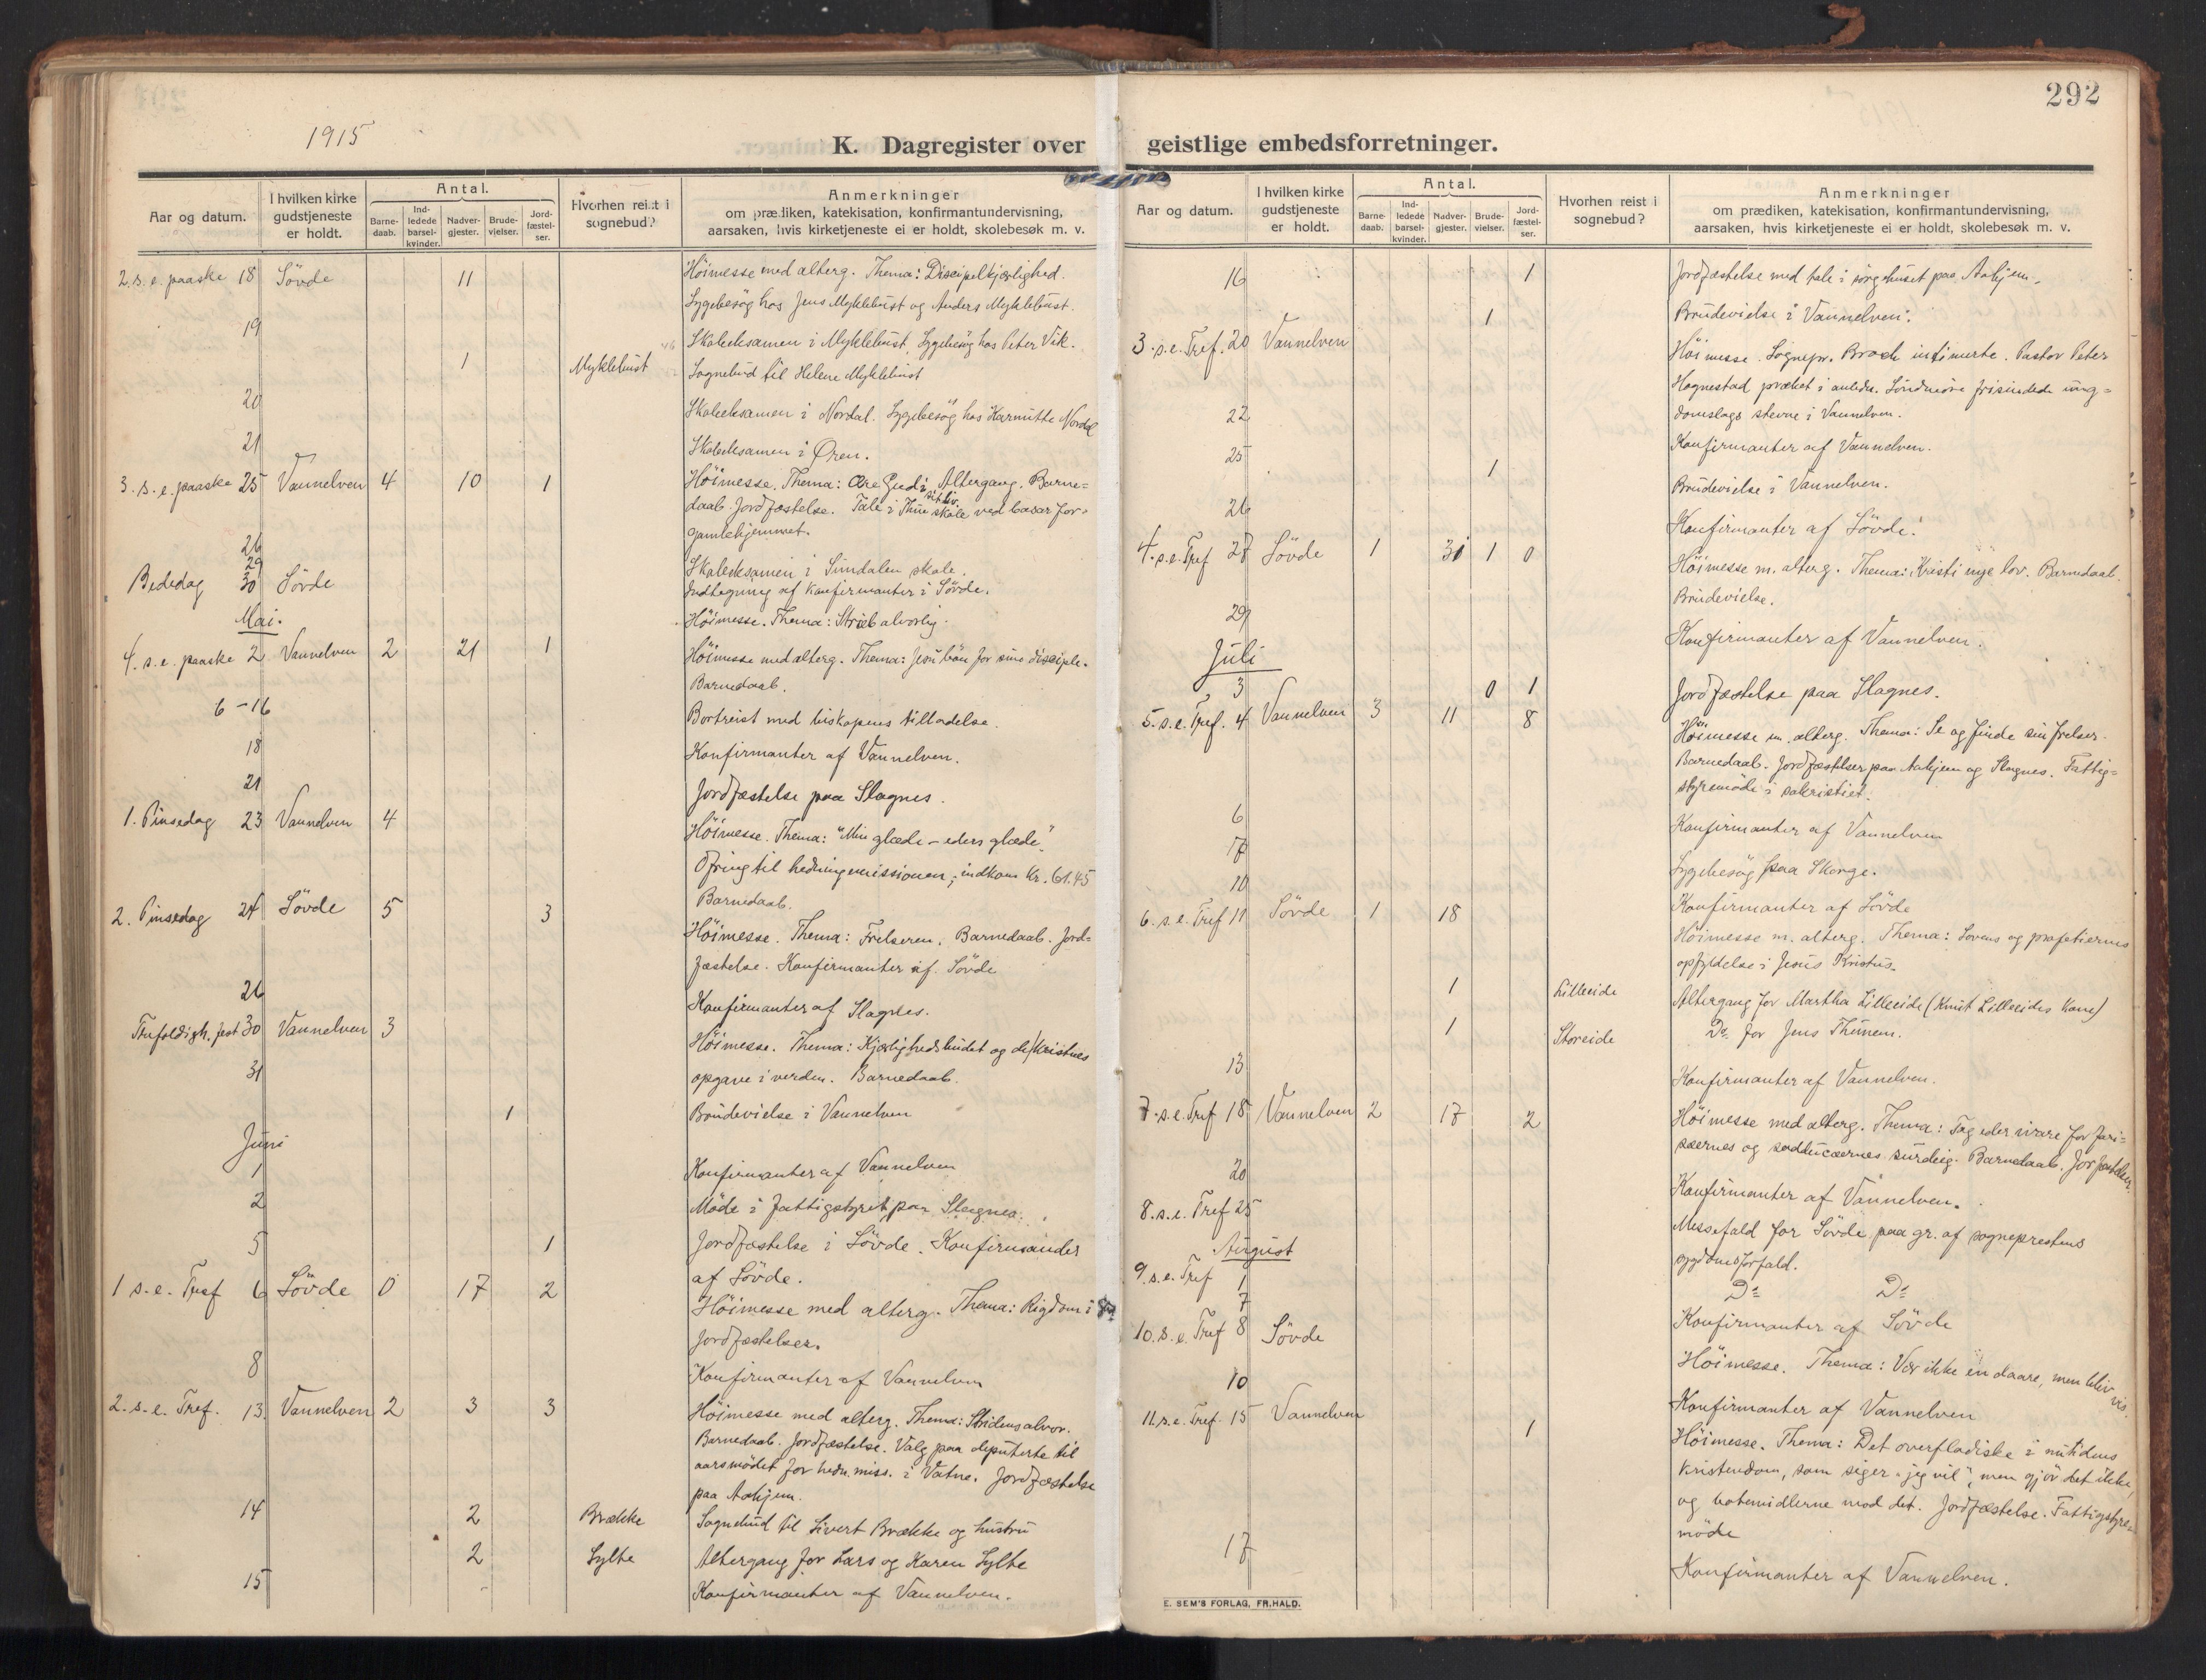 292
1915
K. Dagregister over geistlige embedsforretninger.
Aar og datum. I hvilken kirke gudstjeneste er holdt. Antal. Barne-daab. Ind-ledede barsel-kvinder. Nadver-gjester. Brude-vielser. Jord-fæstel-ser. Hvorhen reist i sognebud? Anmerkninger om prædiken, katekisation, konfirmantundervisning, aarsaken, hvis kirketjeneste ei er holdt, skolebesøk m. v.
2. s. e. paaske 18 Sövde 11 Höimesse med alterg. Thema: Discipelkjærlighed.
Sygebesög hos Jens Myklebust og Anders Myklebust.
19 Skoleeksamen i Myklebust, Sygebesög hos Peter Vik.
1 Myklebust Sognebud til Helene Myklebust
20 Skoleeksamen i Nordal. Sygebesög hos Nordal
21 Skoleeksamen i Øren.
3. s. e. paaske 25 Vannelven 4 10 1 Höimesse. Thema: Ære Gud i sit liv. Altergang. Barne=
daab. Jordfæstelse. Tale i Thun skole ved basar for
gamlehjemmet.
26 Skoleeksamen i Sundalen skole.
29 Indtegning af konfirmanter i Sövde.
Bededag 30 Sövde Höimesse. Thema: Stræb alvorlig.
Mai.
4. s. e. paaske 2 Vannelven 2 21 1 Höimesse med alterg. Thema: Jesu bön for sine disciple.
Barnedaab.
6-16 Bortreist med biskopens tilladelse.
18 Konfirmanter af Vannelven.
21 Jordfæstelse paa Slagnes.
1. Pinsedag 23 Vannelven 4 Höimesse. Thema: "Min glæde - eders glæde".
Ofring til hedningemissionen; indkom Kr. 61.45
Barnedaab.
2. Pinsedag 24 Sövde 5 3 Höimesse. Thema: Frelseren. Barnedaab. Jord=
fæstelse. Konfirmanter af Sövde
26 Konfirmanter af Slagnes.
Trefoldigh. fest 30 Vannelven 3 Höimesse. Thema: Kjærlighedsbudet og de kristnes
opgave i verden. Barnedaab.
31 1 Brudevielse i Vannelven
Juni
1 Konfirmanter af Vannelven
2 Möde i fattigstyret paa Slagnes.
5 1 Jordfæstelse i Sövde. Konfirmander
af Sövde.
1 s. e. Tref 6 Sövde 0 17 2 Höimesse med alterg. Thema: Rigdom i
Jordfæstelser.
8 Konfirmanter af Vannelven
2. s. e. Tref. 13 Vannelven 2 3 3 Höimesse med alterg. Thema: Stridens alvor.
Barnedaab. Jordfæstelse. Valg paa deputerte til
aarsmödet for hedn. miss. i Vatne. Jordfæstelse
paa Aahjem.
14 2 Brække Sognebud til Sivert Brække og hustru
2 Sylte Altergang for Lars og Karen Sylte
15 Konfirmanter af Vannelven.
Aar og datum. I hvilken kirke gudstjeneste er holdt. Antal. Barne-daab. Ind-ledede barsel-kvinder. Nadver-gjester. Brude-vielser. Jord-fæstel-ser. Hvorhen reist i sognebud? Anmerkninger om prædiken, katekisation, konfirmantundervisning, aarsaken, hvis kirketjeneste ei er holdt, skolebesøk m. v.
16 1 Jordfæstelse med tale i sörgehuset paa Aahjem.
1 Brudevielse i Vannelven.
3. s. e. Tref. 20 Vannelven Höimesse. Sognepr. Broch intimerte. Pastor Peter
Hognestad præket i anledn. Söndmöre frisindede ung=
domslags stevne i Vannelven.
22 Konfirmanter af Vannelven.
25 1 Brudevielse i Vannelven.
26 Konfirmanter af Sövde.
4. s. e. Tref 27 Sövde 1 31 1 0 Höimesse m. alterg. Thema: Kristi nye lov. Barnedaab.
Brudevielse.
29 Konfirmanter af Vannelven.
Juli
3 0 1 Jordfæstelse paa Slagnes.
5. s. e. Tref. 4 Vannelven 3 11 8 Höimesse m. alterg. Thema: Se og finde sin frelser.
Barnedaab. Jordfæstelser paa Aahjem og Slagnes. Fattig=
styremöde i sakristiet.
6 Konfirmanter af Vannelven
Sygebesög paa Skorge.
10 Konfirmanter af Sövde
6. s. e. Tref 11 Sövde 1 18 Höimesse m. alterg. Thema: Lovens og profetiernes
opfyldelse i Jesus Kristus.
1 Lilleeide Altergang for Martha Lilleeide (Knut Lilleeides kone)
1 Storeide Do for Jens Thunem.
13 Konfirmanter af Vannelven.
7. s. e. Tref 18 Vannelven 2 17 2 Höimesse med alterg. Thema: Tag eder vare for fari=
sæernes og sadducæernes surdeig. Barnedaab. Jordfæstelser.
20 Konfirmanter af Vannelven.
8. s. e. Tref 25 Messefald for Sövde paa gr. af sogneprestens
sygdomsforfald.
August
9. s. e. Tref 1 Do Do
7 Konfirmanter af Sövde
10. s. e. Tref 8 Sövde Höimesse. Thema: Vær ikke en daare, men bliv vis.
10 Konfirmanter af Vannelven
11. s. e. Tref. 15 Vannelven 1 Höimesse. Thema: Det overfladiske i nutidens
kristendom, som siger "jeg vil", men gjör det ikke,
og botemidlerne mod det. Jordfæstelse. Fattigstyre=
möde
17 Konfirmanter af Vannelven.
E. SEM'S FORLAG, FR.HALD.